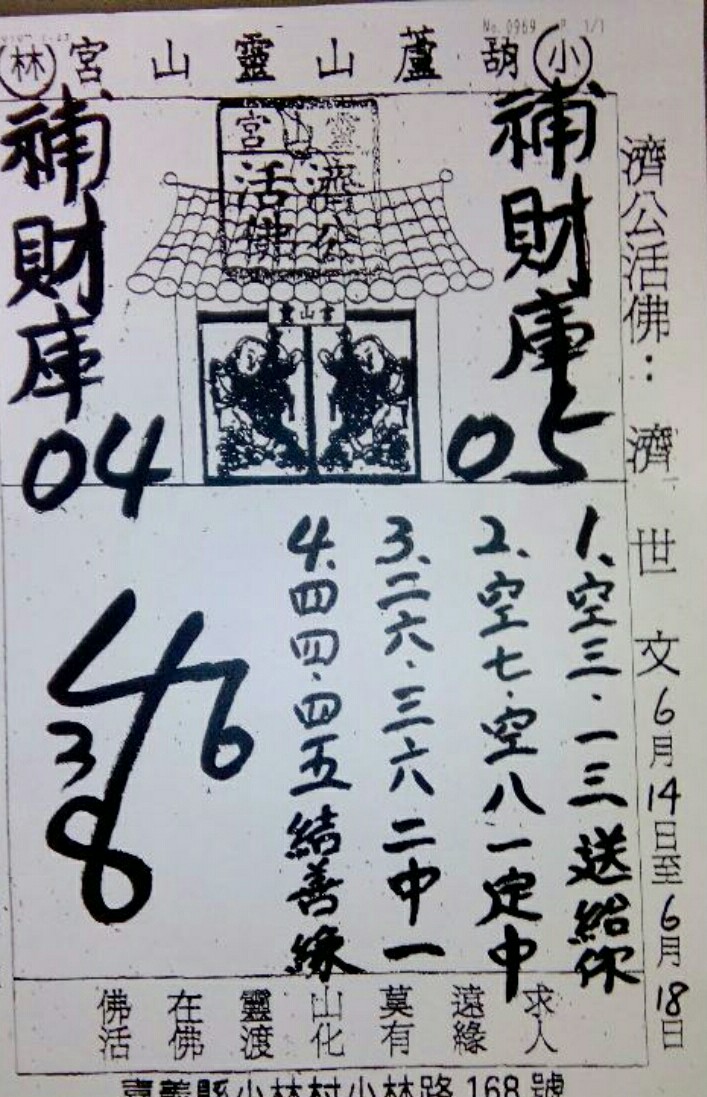 No. 0969 P 1/1
小 胡蘆山靈山宮 林
濟公活佛：濟世文6月14日至6月18日
補財庫
05
補財庫
04
靈山宮
濟公
活佛
1、空三．一三送給你
2、空七．空八一定中
3、二六．三六二中一
4、四四．四五結善緣
46
3
8
求人
遠緣
莫有
山化
靈渡
在佛
佛活
嘉義縣小林村小林路168號